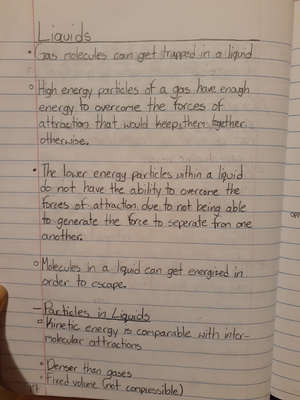 Liquids
• Gas molecules can get trapped in a liquid
○ High energy particles of a gas have enogh
energy to overcome the forces of
attraction that would keep them together
otherwise.
• The lower energy particles within a liquid
do not have the ability to overcome the
forces of attraction due to not being able
to generate the force to seperate from one
another.
○ Molecules in a liquid can get energised in
order to escape.
– Particles in Liquids
○ Kinetic energy is comparable with inter-
molecular attractions
○ Denser than gases
• Fixed volume (not compressible)